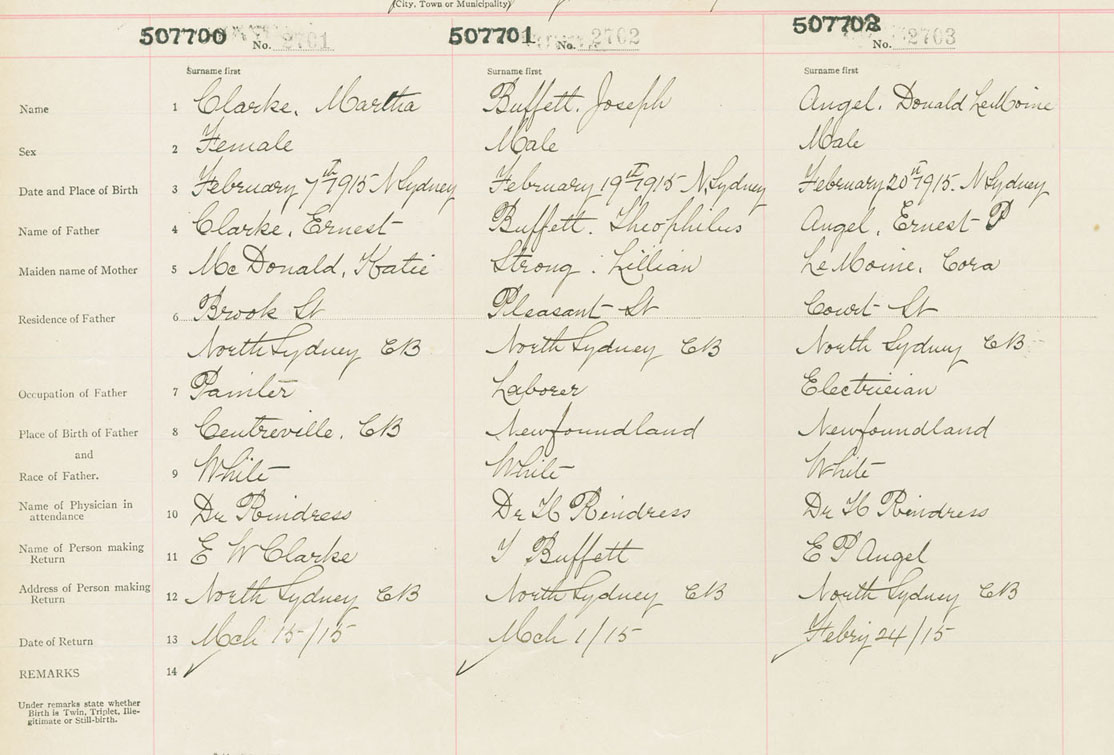 (City, Town or Municipality)
507700 No. 2701 507701 No. 2702 507702 No. 2703
Surname first Surname first Surname first
Name 1 Clarke, Martha Buffett. Joseph Angel. Donald LeMoine
Sex 2 Female Male Male
Date and Place of Birth 3 February 7th 1915 N Sydney February 19th 1915 N. Sydney February 20th 1915. N Sydney
Name of Father 4 Clarke, Ernest Buffett. Theophilus Angel, Ernest P
Maiden name of Mother 5 Mc Donald, Katie Strong. Lillian LeMoine, Cora
Residence of Father 6 Brook St Pleasant St Court St
North Sydney CB North Sydney CB North Sydney CB
Occupation of Father 7 Painter Laborer Electrician
Place of Birth of Father 8 Centreville, CB Newfoundland Newfoundland
and
Race of Father. 9 White White White
Name of Physician in
attendance 10 Dr Rindress Dr H Rindress Dr H Rindress
Name of Person making
Return 11 E W Clarke T Buffett E P Angel
Address of Person making
Return 12 North Sydney CB North Sydney CB North Sydney CB
Date of Return 13 Mch 15/15 Mch 1/15 Febry 24/15
REMARKS 14
Under remarks state whether
Birth is Twin, Triplet, Ille-
gitimate or Still-birth.